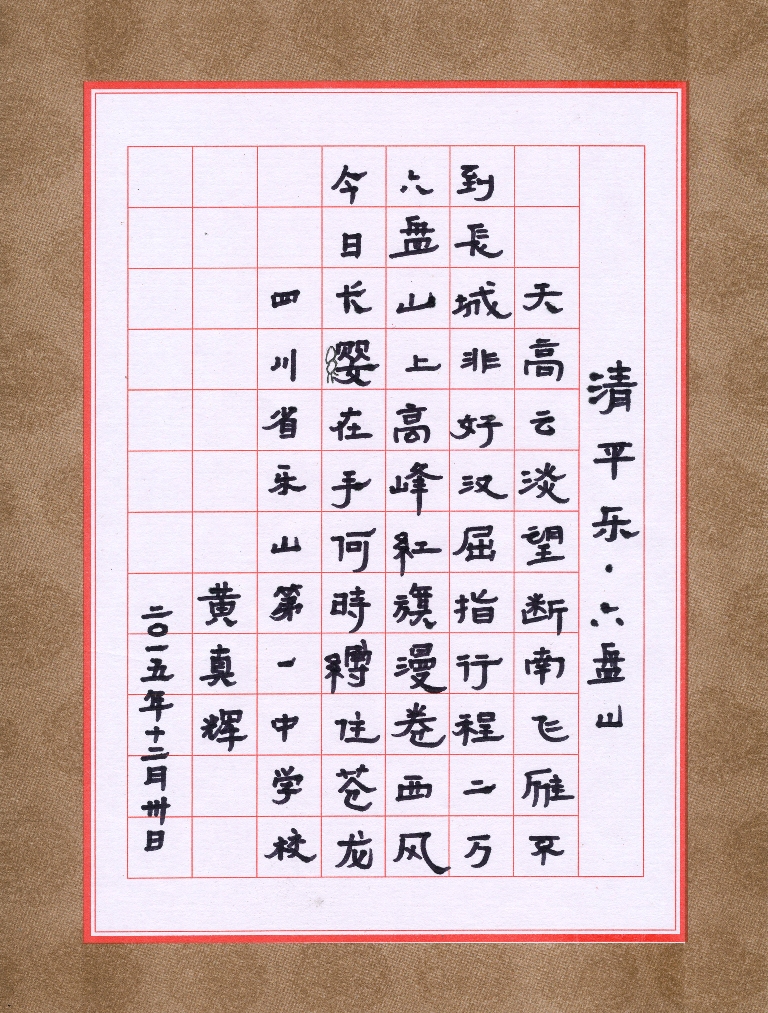 清平乐·六盘山
天高云淡望断南飞雁不
到長城非好汉屈指行程二万
六盘山上高峰紅旗漫卷西风
今日长缨在手何時縛住苍龙
四川省乐山第一中学校
黄真辉
二〇一五年十二月卅日